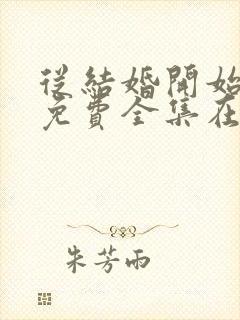 從結婚開始
免費全集在
朱芳雨